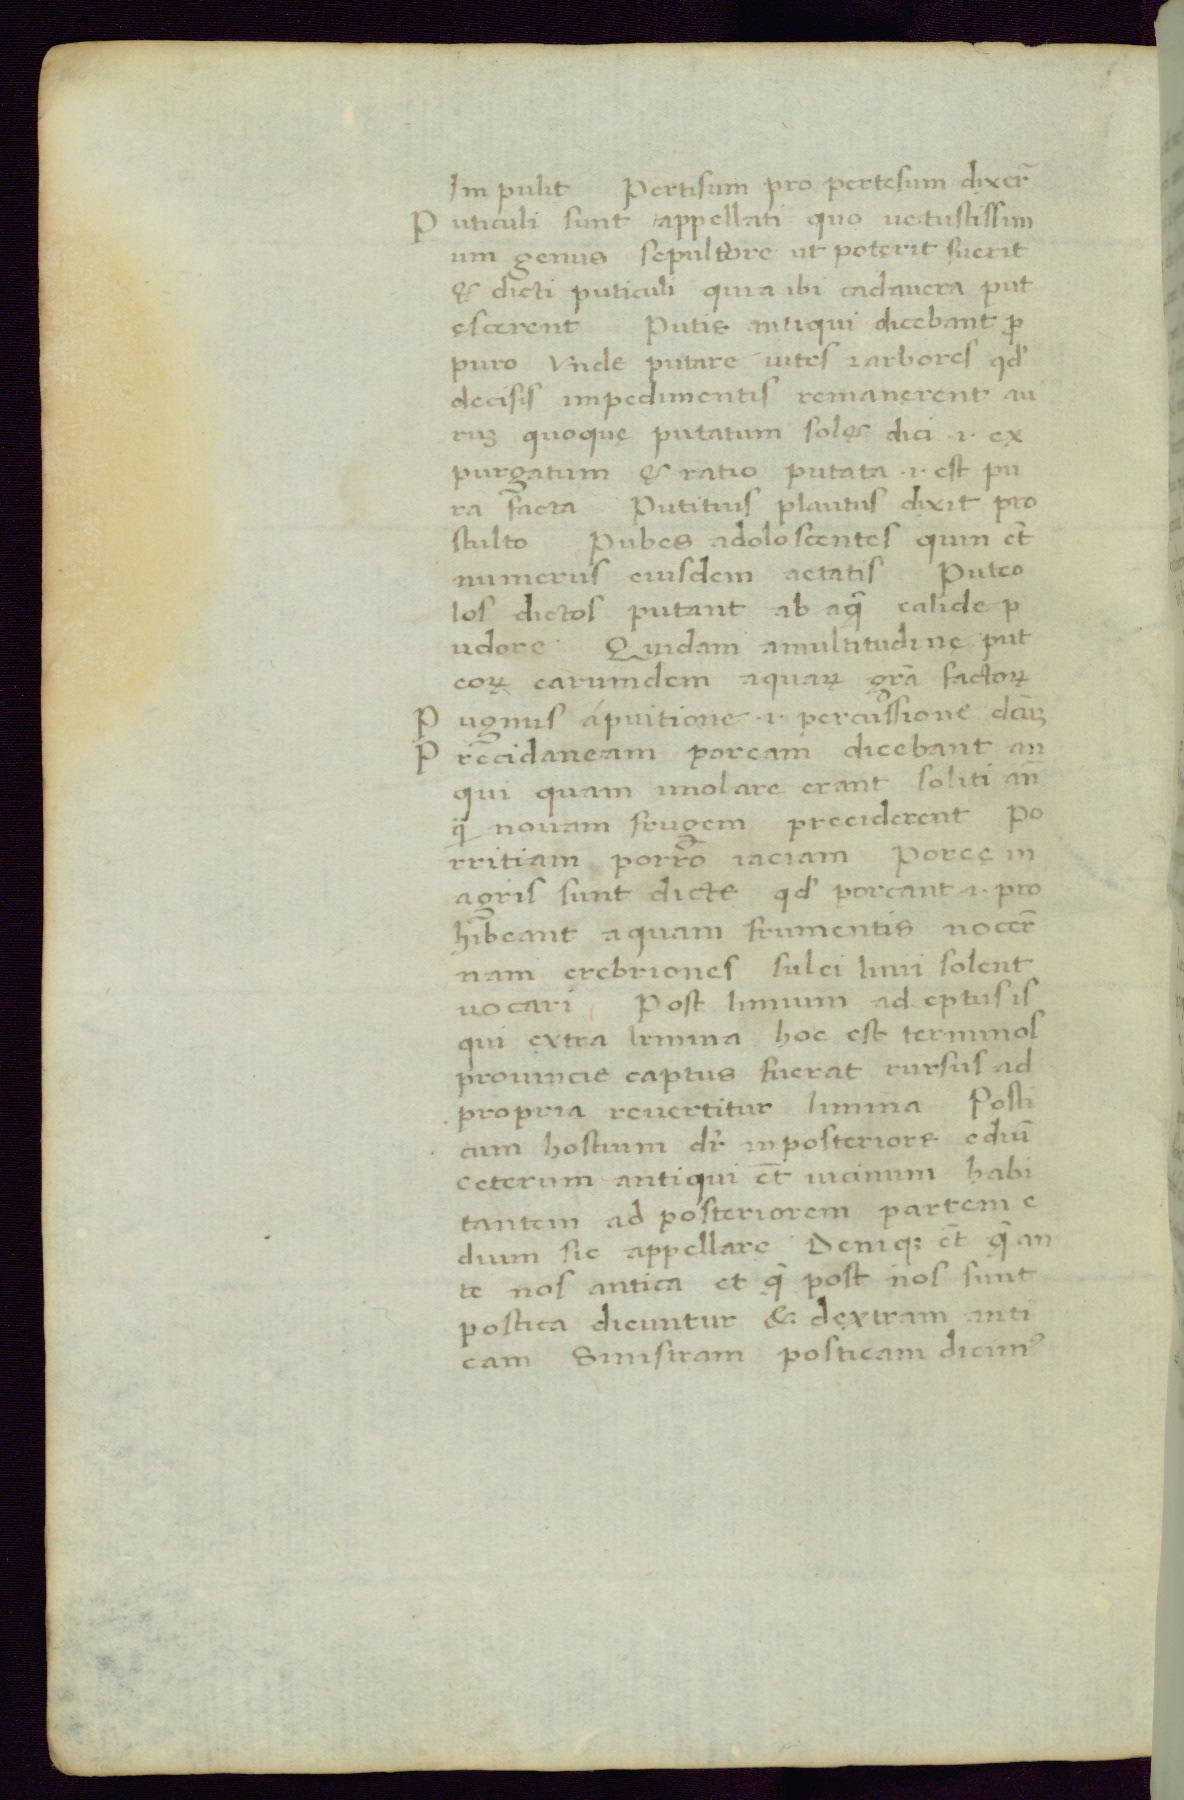 Impulit Pertisum pro pertesum dixer̄
Puticuli sunt appellati quo uetustissim
um genus sepultore ut poterit fuerit
& dicti puticuli quia ibi cadauera put
escerent Putis antiqui dicebant ꝓ
puro Vnde putare uites ⁊ arbores qd'
decisis impedimentis remanerent au
ruꝫ quoque putatum sol& dici .i. ex
purgatum & ratio putata .i. est pu
ra facta Putitius plautus dixit pro
stulto Pubes adoloscentes quin et̄
numerus eiusdem aetatis Puteo
los dictos putant ab aq̄ calide p
udore Quidam amultitudine put
eoꝝ earumdem aquaꝝ gr̄a factoꝝ
Pugnus apuitione .i. percussione
Prēcidaneam porcam dicebant an
qui quam imolare erant soliti an̄
q̄ nouam frugem preciderent Po
rritiam porro iaciam Porce in
agris sunt dicte qd' porcant .i. pro
hibeant aquam frumentis nocer̄
nam crebriones sulci limi solent
uocari Post limium adeptus is
qui extra limina hoc est terminos
prouincie captus fuerat rursus ad
propria reuertitur limina Posti
cum hostium dr̄ inposteriore ediū
ceterum antiqui et̄ uicinum habi
tantem ad posteriorem partem e
dium sic appellare Deniqꝫ et̄ q̄ an
te nos antica et q̄ post nos sunt
postica dicuntur & dextram anti
cam Sinistram posticam dicim᾽